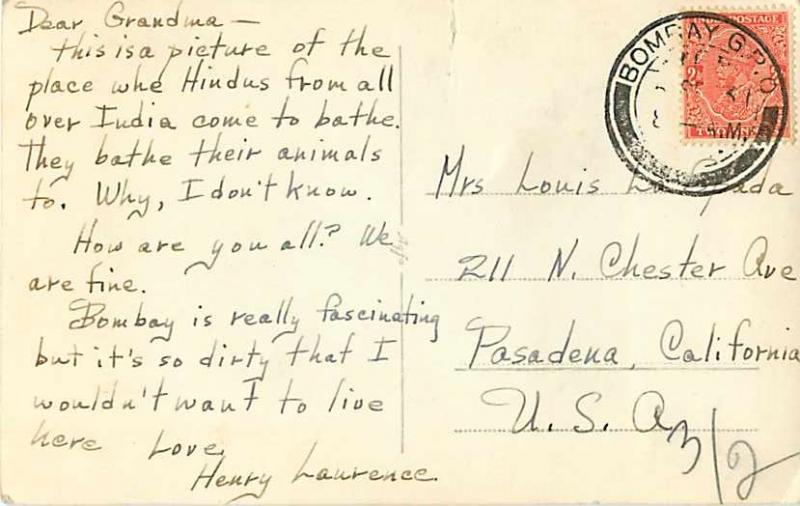 Dear Grandma —
this is a picture of the
place whe Hindus from all
over India come to bathe.
They bathe their animals
to. Why, I don't know.
How are you all? We
are fine.
Bombay is really fascinating
but it's so dirty that I
wouldn't want to live
here Love,
Henry Laurence.
Agfa
INDIA POSTAGE
BOMBAY G.P.O.
A.M.
Mrs Louis
211 N. Chester Ave
Pasadena, California
U. S. A.
3/2